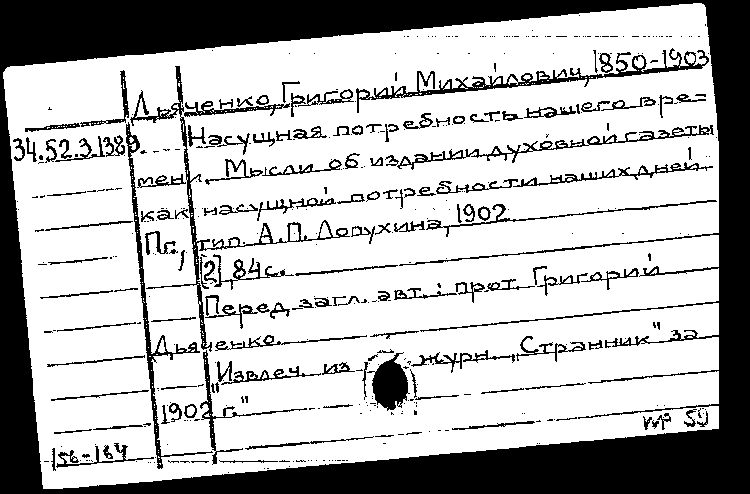 Дьяченко, Григорий Михайлович, 1850-1903
34.52.3.1389. Насущная потребность нашего вре=
мени. Мысли об издании духовной газеты
как насущной потребности наших дней.
Пг., тип. А.П. Лопухина, 1902.
[2], 84 с.
Перед загл. авт.: прот. Григорий
Дьяченко.
"Извлеч. из журн. „Странник" за
1902 г."
156-184